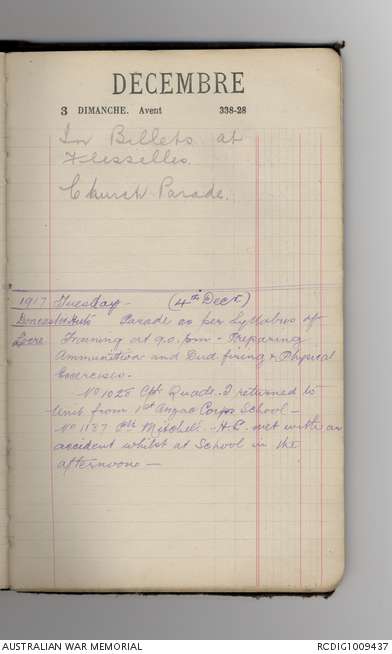 DÉCEMBRE
3 DIMANCHE. Avent 338-28
In Billets at
Flesselles.
Church Parade.
1917 Tuesday - (4th Dec.)
Doncaster Huts Parade as per Syllabus of
Locre Training at 9.0. - Preparing
Ammunition and Dud firing & Physical
Exercises.
No 1028 Cpl Quade. J returned to
Unit from 1st Anzac Corps School -
No 1137 Mitchell. H.C. met with an
accident whilst at School in the
afternoone -
AUSTRALIAN WAR MEMORIAL RCDIG1009437